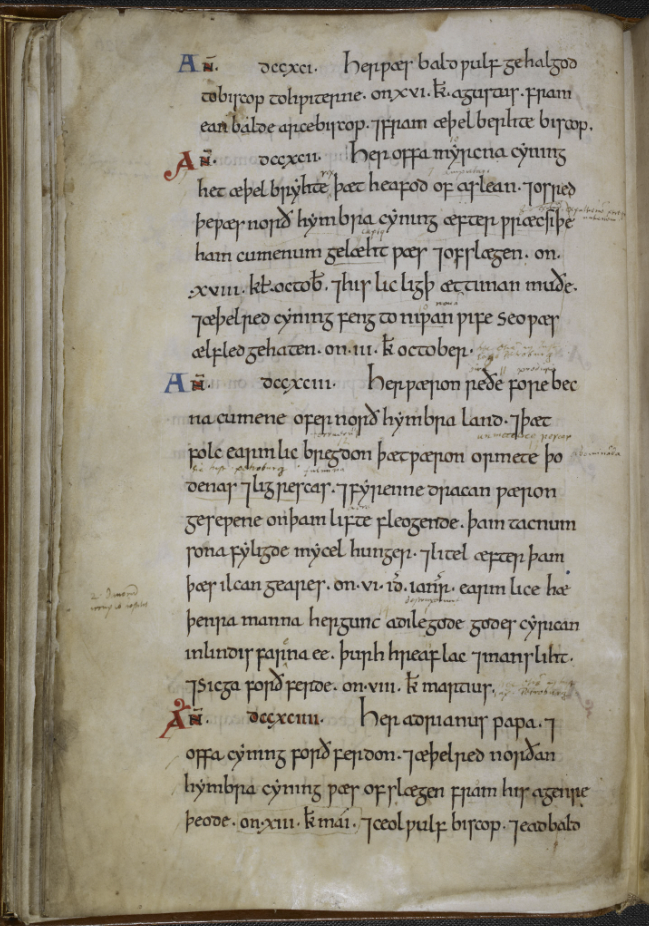 AN̄. dccxci. Her ƿæs baldƿulf gehalgod
tobiscop tohƿiterne. onxvi. k̄. agustus. fram
eanbalde arcebiscop. ⁊fram æþelberhte biscop.
AN̄. dccxcii. Her offa myrcna cyning
het æþelbryhte þæt heafod of aslean. ⁊osred
þeƿæs norðhymbra cyning æfter præcsiþe
ham cumenum gelæht ƿæs ⁊ofslægen. on.
.xviii. kł. octob̄. ⁊his lic ligþ ættinan muðe.
⁊æþelred cyning feng to niƿan ƿife seo ƿæs
ælfled gehaten. on .iii. k̄ october.
AN̄. dccxciii. Her ƿæron reðe forebec
na cumene ofer norðhymbra land. ⁊þæt
folc earmlic bregdon þæt ƿæron ormete þo
denas ⁊ligrescas. ⁊fyrenne dracan ƿæron
geseƿene onþam lifte fleogende. þam tacnum
sona fyligde mycel hunger. ⁊litel æfter þam
þæs ilcan geares. on .vi. id̄. ianr̄. earmlice hæ
þenra manna hergunc adilegode godes cyrican
inlindisfarna ee. þurh hreaflac ⁊mansliht.
⁊Sicga forðferde. on .viii. k̄ martius.
AN̄. dccxciiii. Her adrianus papa. ⁊
offa cyning forðferdon. ⁊æþelred norðan
hymbra cyning ƿæs ofslægen fram his agenre
þeode. on .xiii. k̄ mai. ⁊ceolƿulf biscop. ⁊eadbald